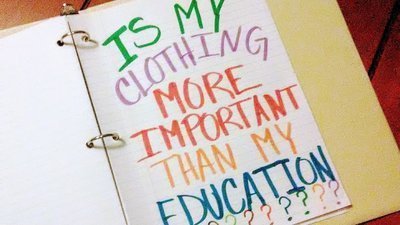 IS MY
CLOTHING
MORE
IMPORTANT
THAN MY
EDUCATION
???????